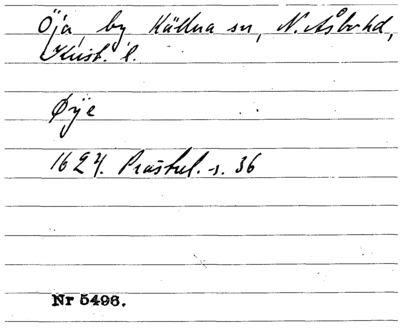 Öja by Källna sn, N. Åsbo hd,
Krist. l.
Øye
1624. Prästrel. s. 36
Nr 5496.